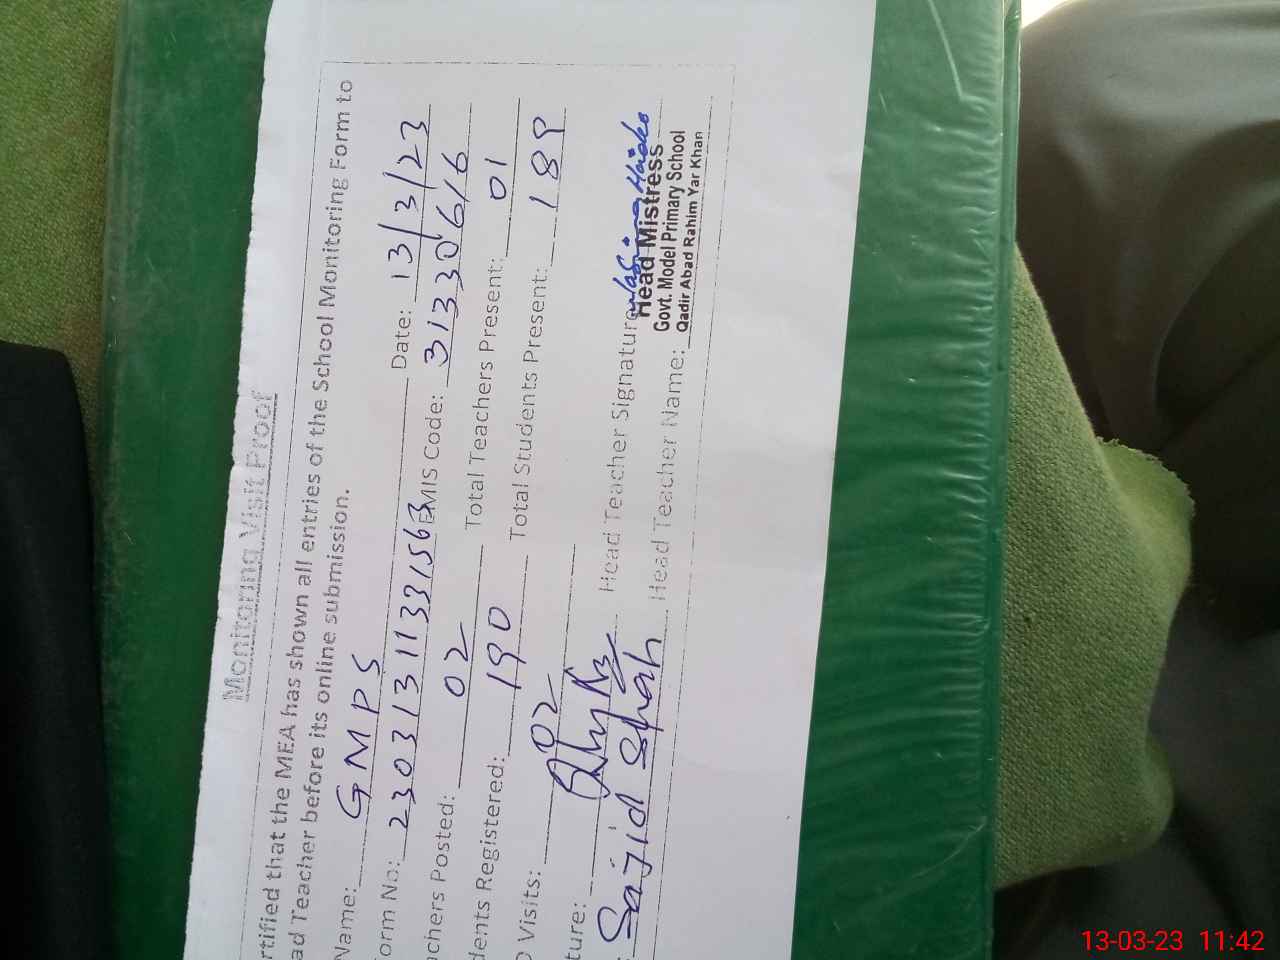 Monitoring Visit Proof
rtified that the MEA has shown all entries of the School Monitoring Form to
ad Teacher before its online submission.
Name: GMPS
orm No: 2303131133156 Date: 13/3/23
EMIS Code: 31330616
achers Posted: 02 Total Teachers Present: 01
dents Registered: 190 Total Students Present: 189
Visits: 02
ture: Head Teacher Signature
Sajid Shah Head Teacher Name:
Head Mistress
Govt. Model Primary School
Qadir Abad Rahim Yar Khan
13-03-23 11:42